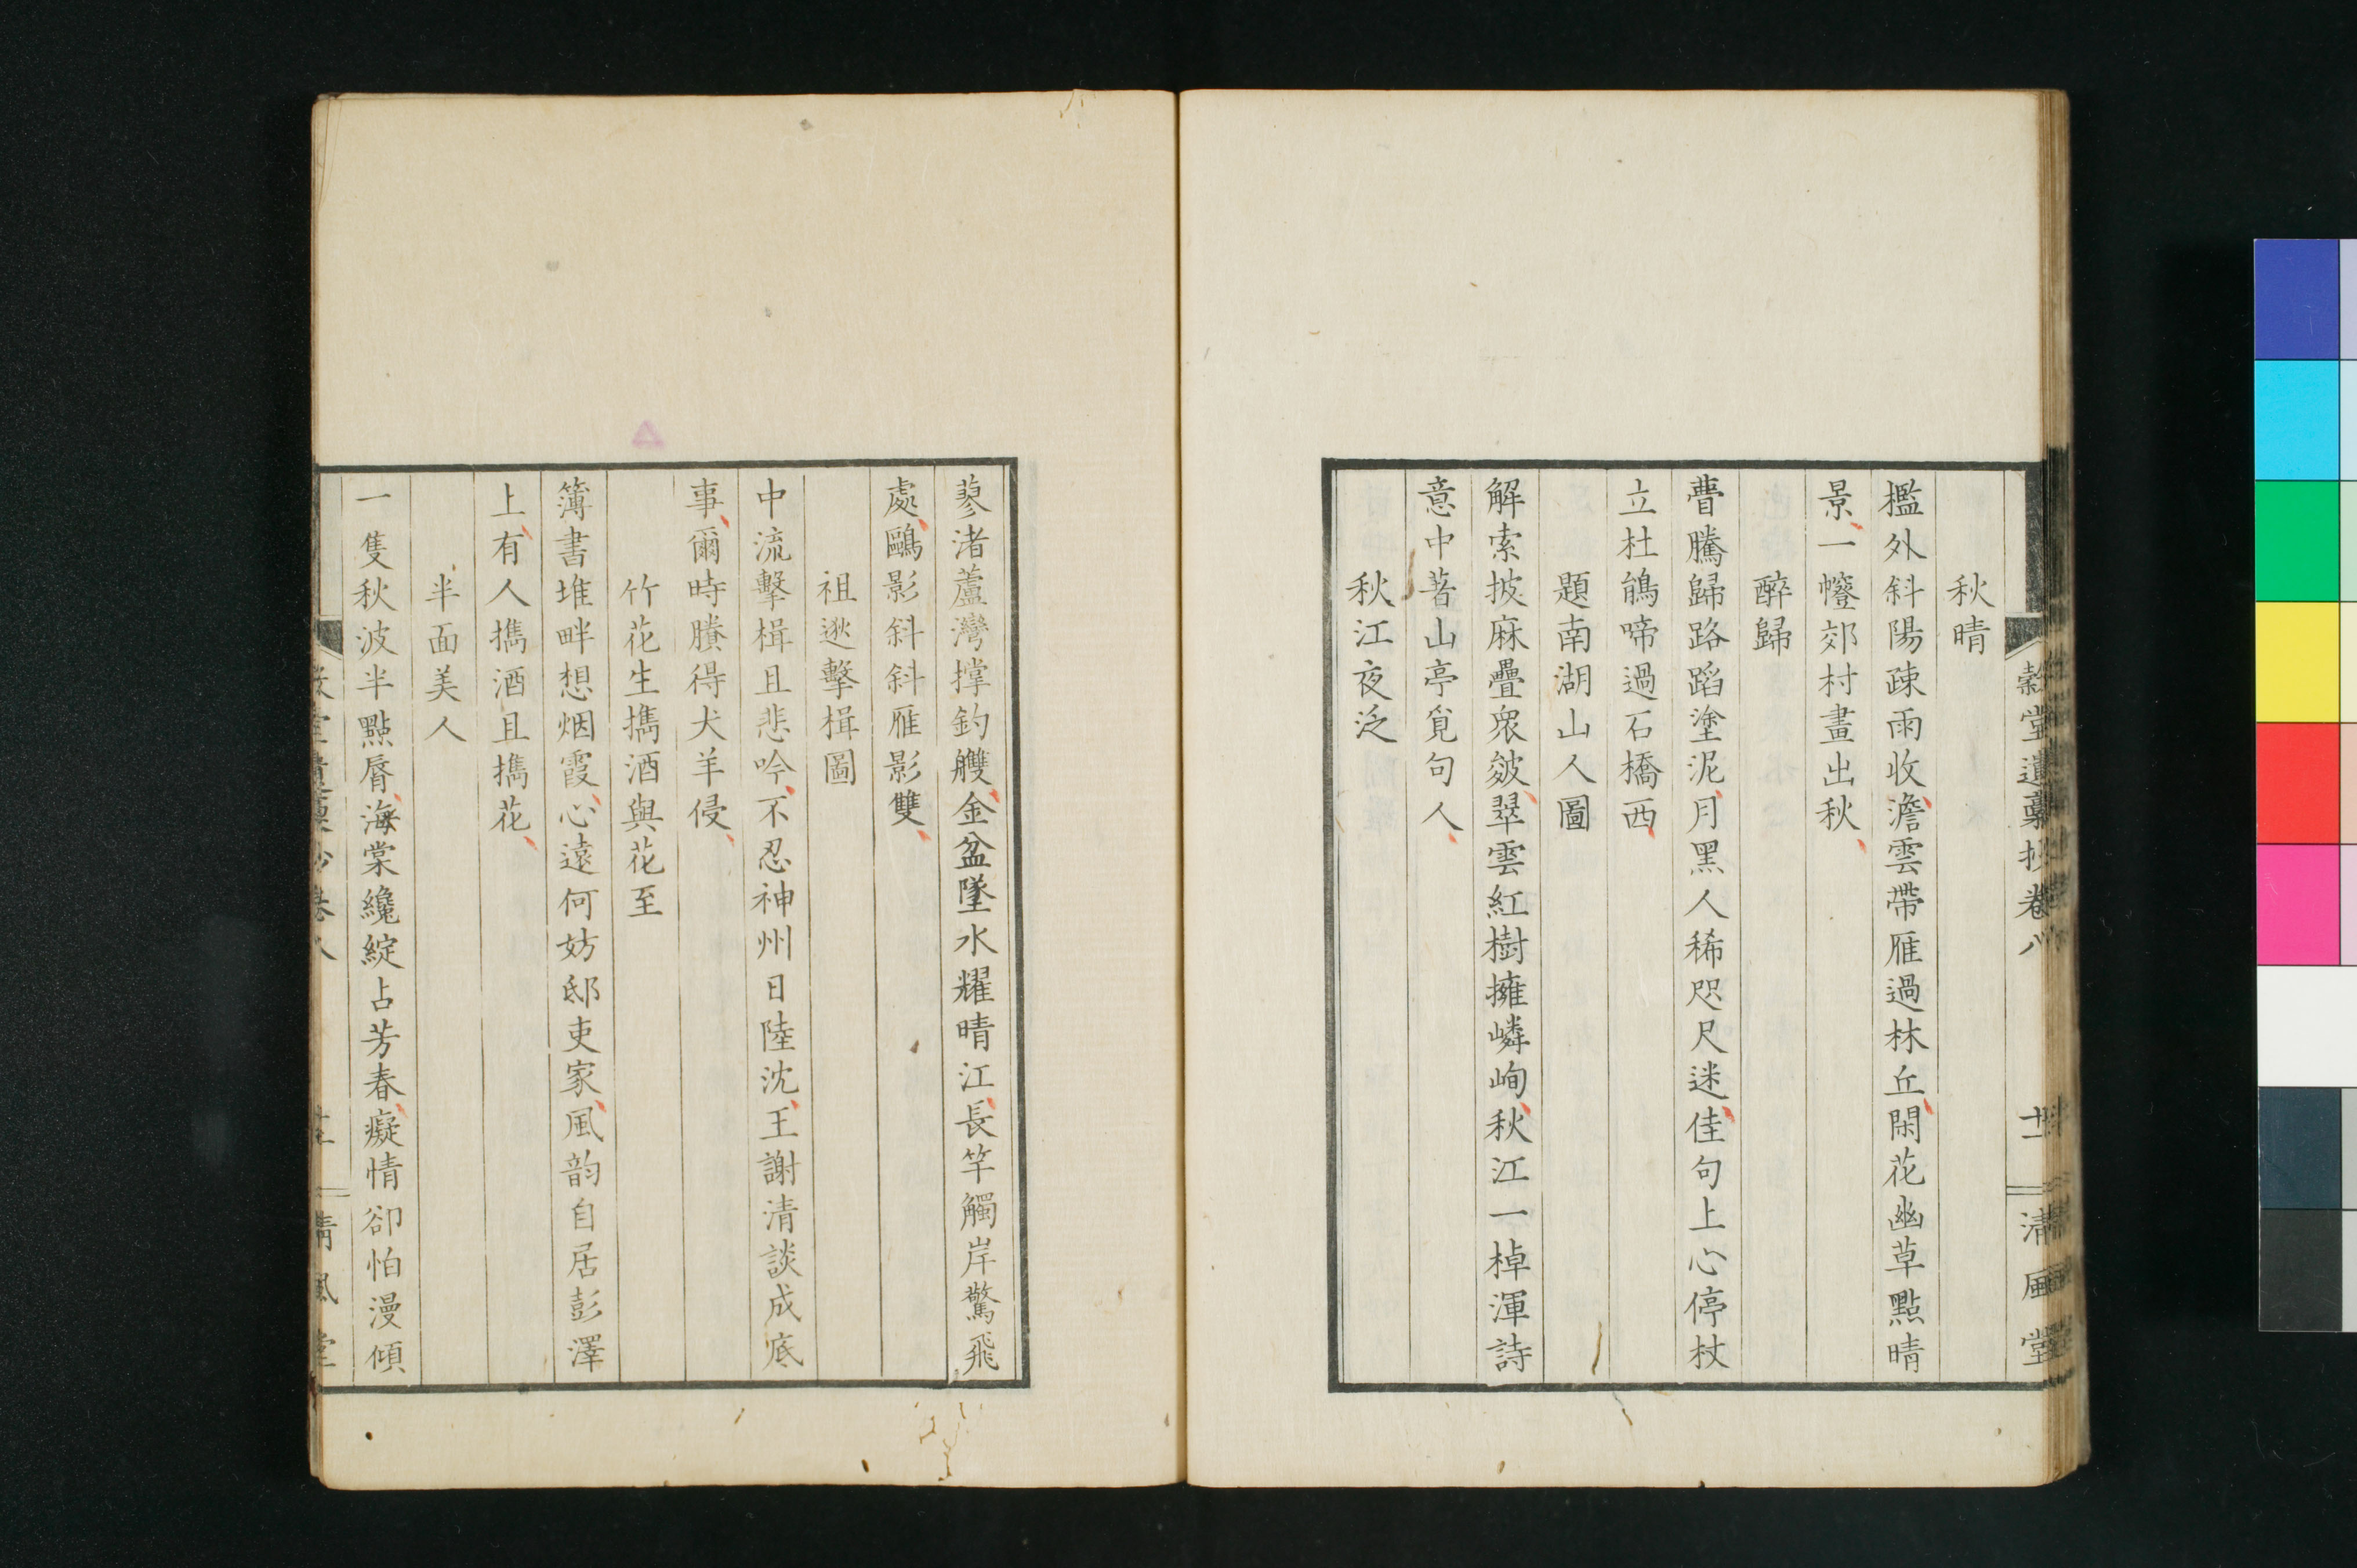 穀堂遺稾抄卷八
十一
清風堂
秋晴
檻外斜陽疎雨收澹雲帶雁過林丘閑花幽草點晴
景一幰郊村畫出秋
醉歸
瞢騰歸路蹈塗泥月黑人稀咫尺迷佳句上心停杖
立杜鵑啼過石橋西
題南湖山人圖
解索披麻疊衆皴翠雲紅樹擁嶙峋秋江一棹渾詩
意中著山亭覓句人
秋江夜泛
蓼渚蘆灣撑釣艭金盆墜水耀晴江長竿觸岸驚飛
處鷗影斜斜雁影雙
祖逖擊楫圖
中流擊楫且悲吟不忍神州日陸沈王謝清談成底
事爾時賸得犬羊侵
竹花生携酒與花至
簿書堆畔想烟霞心遠何妨邸吏家風韵自居彭澤
上有人携酒且携花
半面美人
一隻秋波半點脣海棠纔綻占芳春癡情卻怕漫傾
清風堂